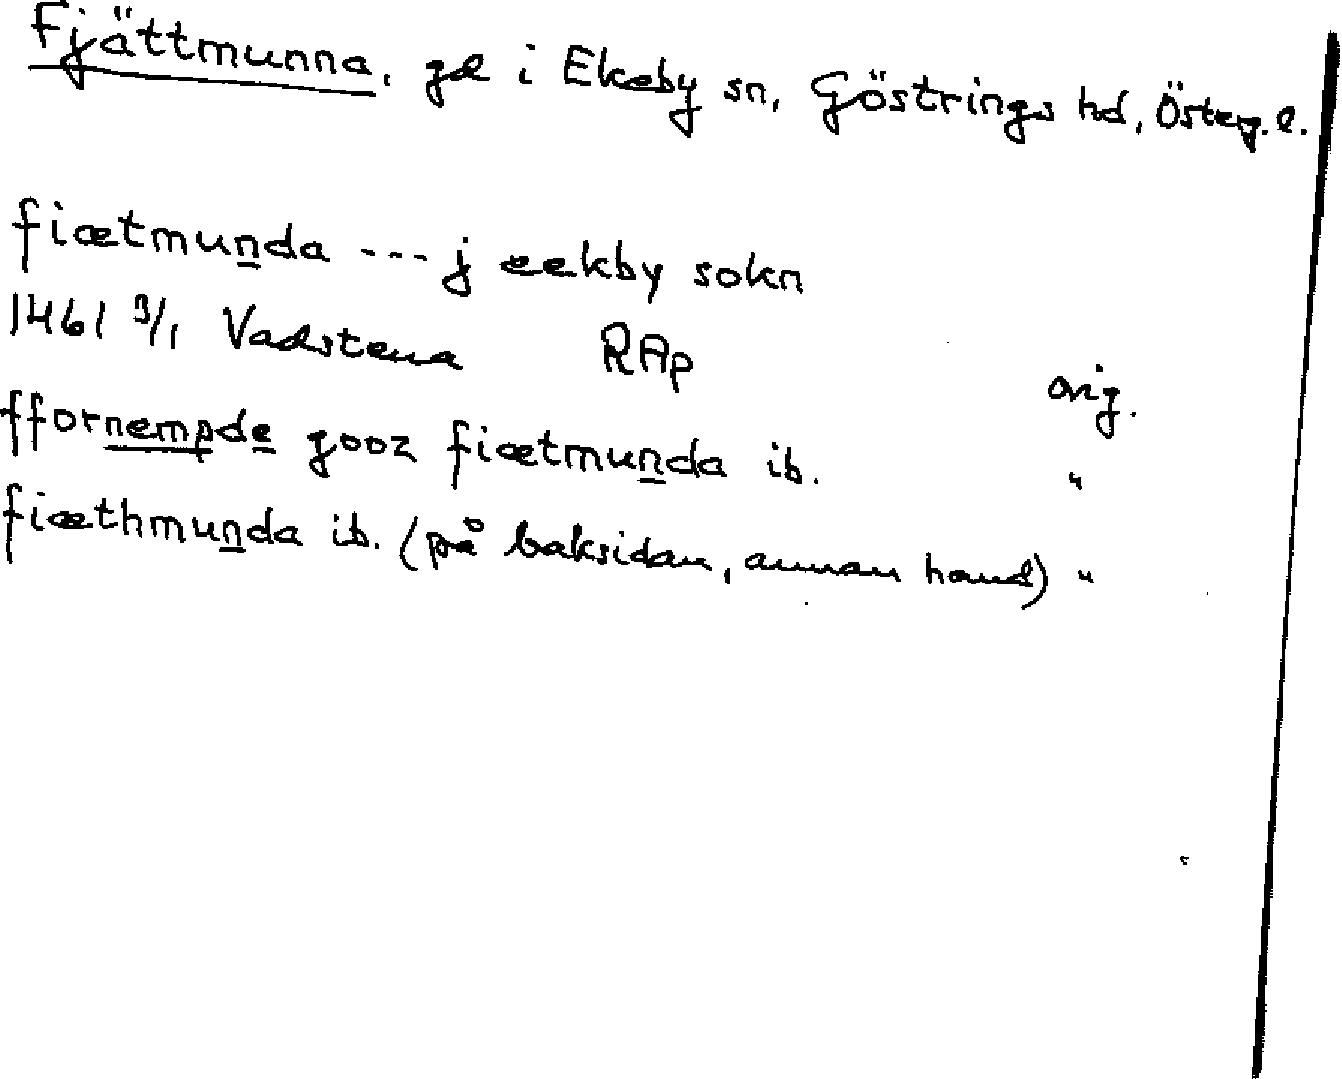 Fjättmunna, gd i Ekeby sn, Göstrings hd, Österg. l.
fiætmunda --- j eekby sokn
1461 3/1 Vadstena RAp orig.
ffornempde gooz fiætmunda ib. "
fiæthmunda ib. (på baksidan, annan hand) "